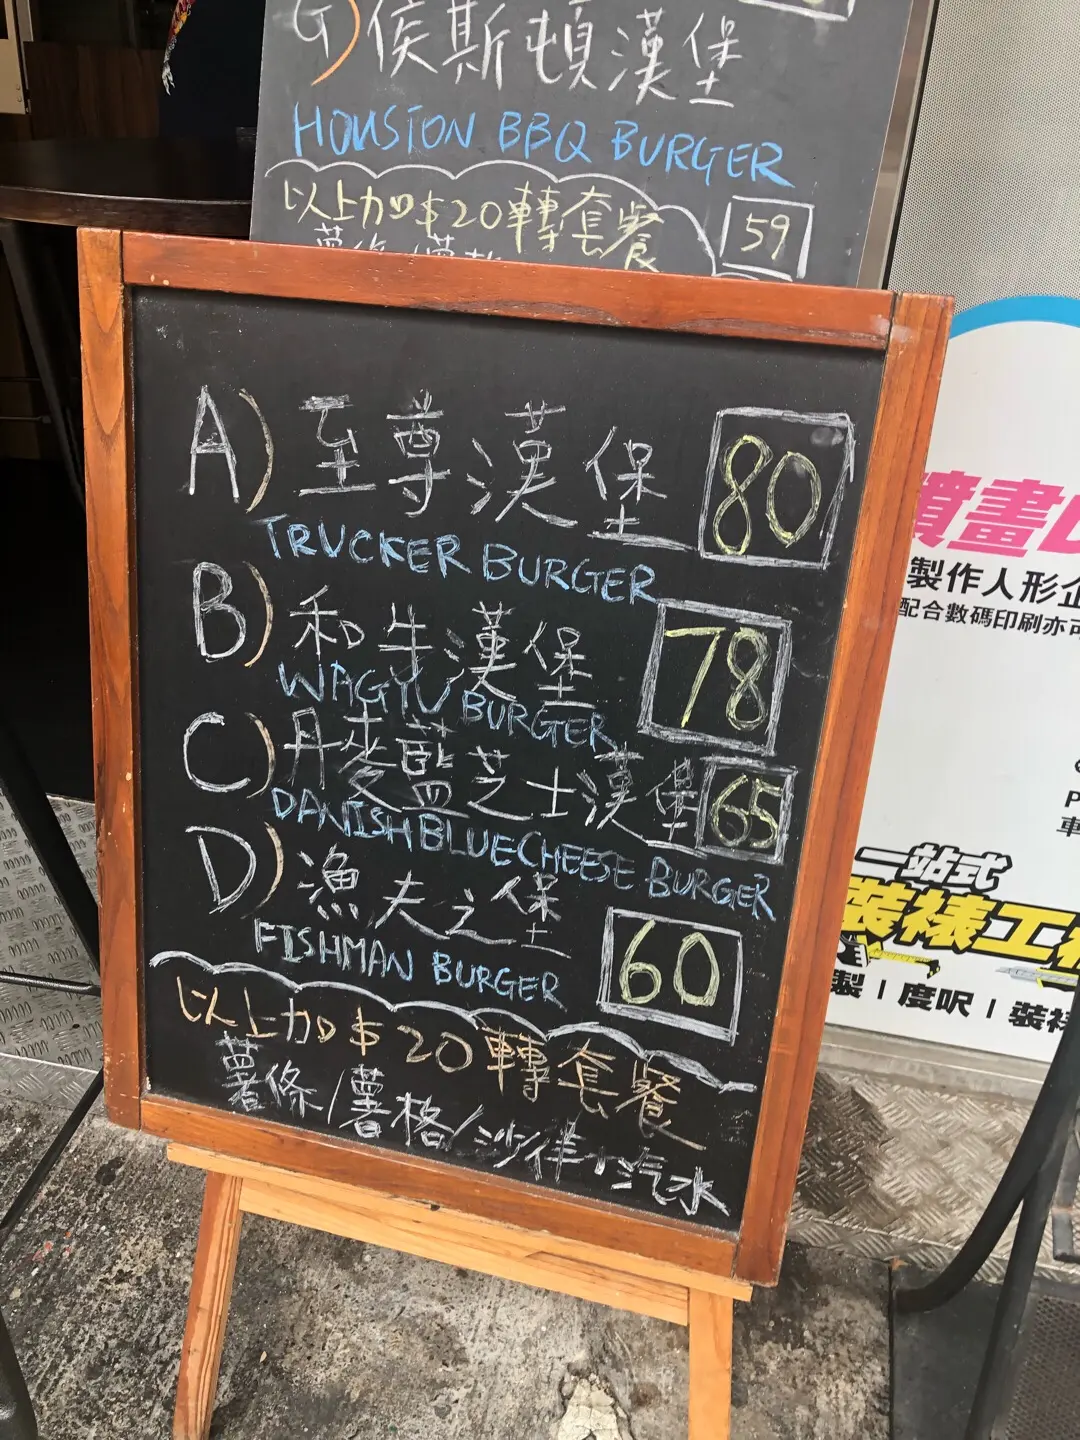 G) 侯斯頓漢堡
HOUSTON BBQ BURGER
以上加$20轉套餐
59
A) 至尊漢堡 80
TRUCKER BURGER
B) 和牛漢堡 78
WAGYU BURGER
C) 丹麥藍芝士漢堡 65
DANISH BLUE CHEESE BURGER
D) 漁夫之堡 60
FISHMAN BURGER
以上加$20轉套餐
薯條/薯格/沙律+汽水
噴畫
製作人形企
配合數碼印刷亦可
車
一站式
裝裱工
製 | 度呎 | 裝裱